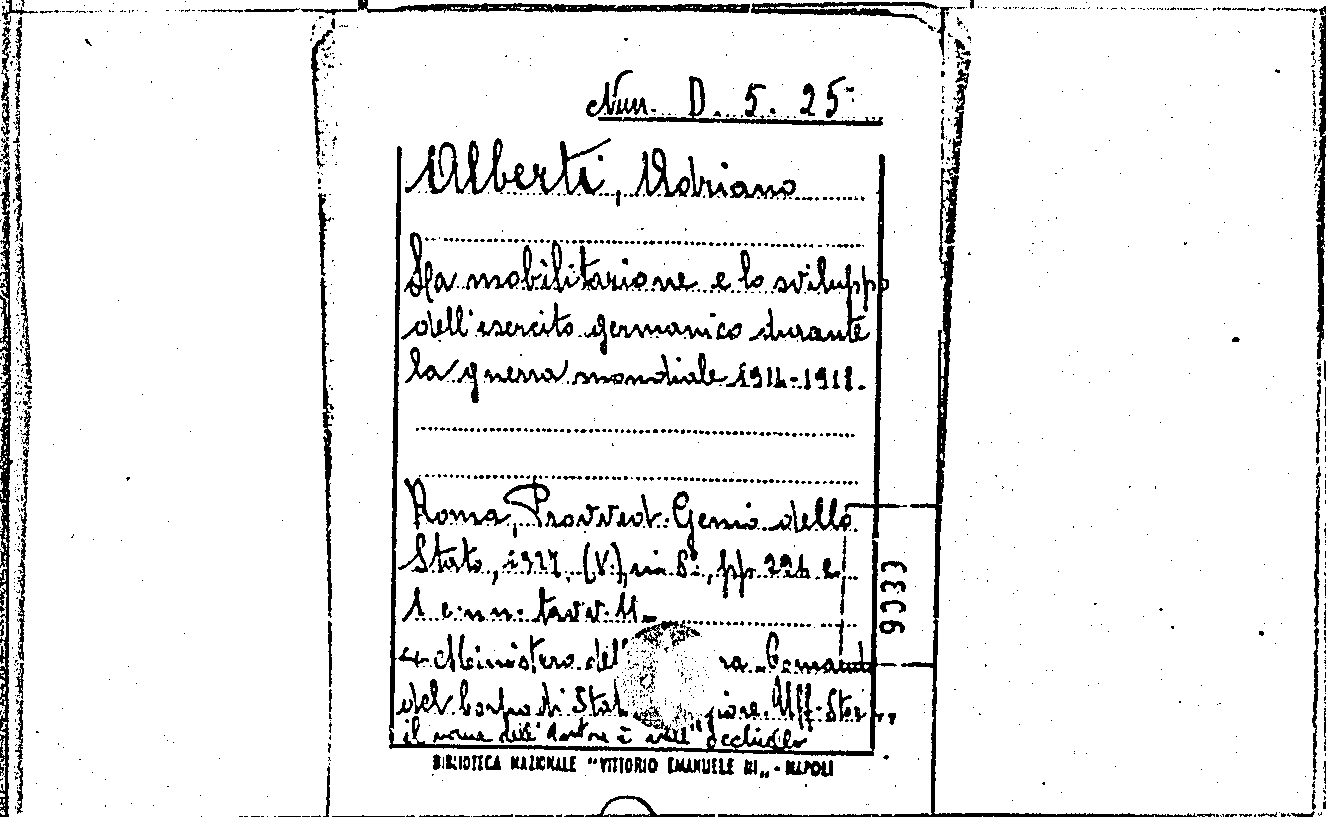 Nun. D. 5. 25
Alberti, Adriano
La mobilitazione e lo sviluppo
dell'esercito germanico durante
la guerra mondiale 1914-1918.
Roma, Provved. Gen. dello
Stato, 1927, (V.), in 8°, pp. 226 e
1 c. nn. tavv. 11.
Ministero del ra. Comando
del Corpo di Stat giore. Uff. Stor.
il nome dell'Autore è nell'occhiello
BIBLIOTECA NAZIONALE "VITTORIO EMANUELE III" - NAPOLI
9033